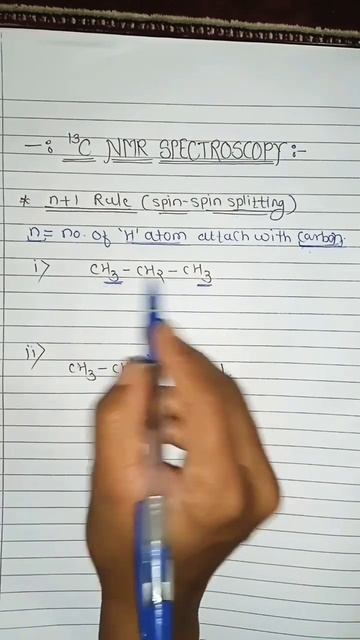 -: ¹³C NMR SPECTROSCOPY :-
* n+1 Rule (spin-spin splitting)
n = no. of 'H' atom attach with Carbon.
i) CH₃ - CH₂ - CH₃
ii) CH₃ -